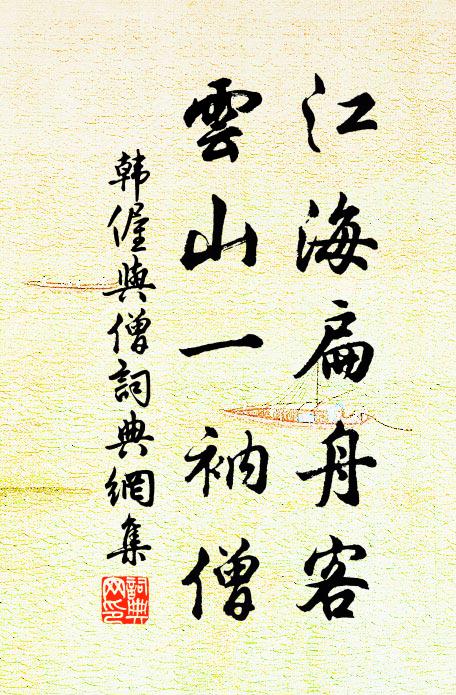 江海扁舟客
雲山一衲僧
韩偓與僧詞典網集
詞典
网印